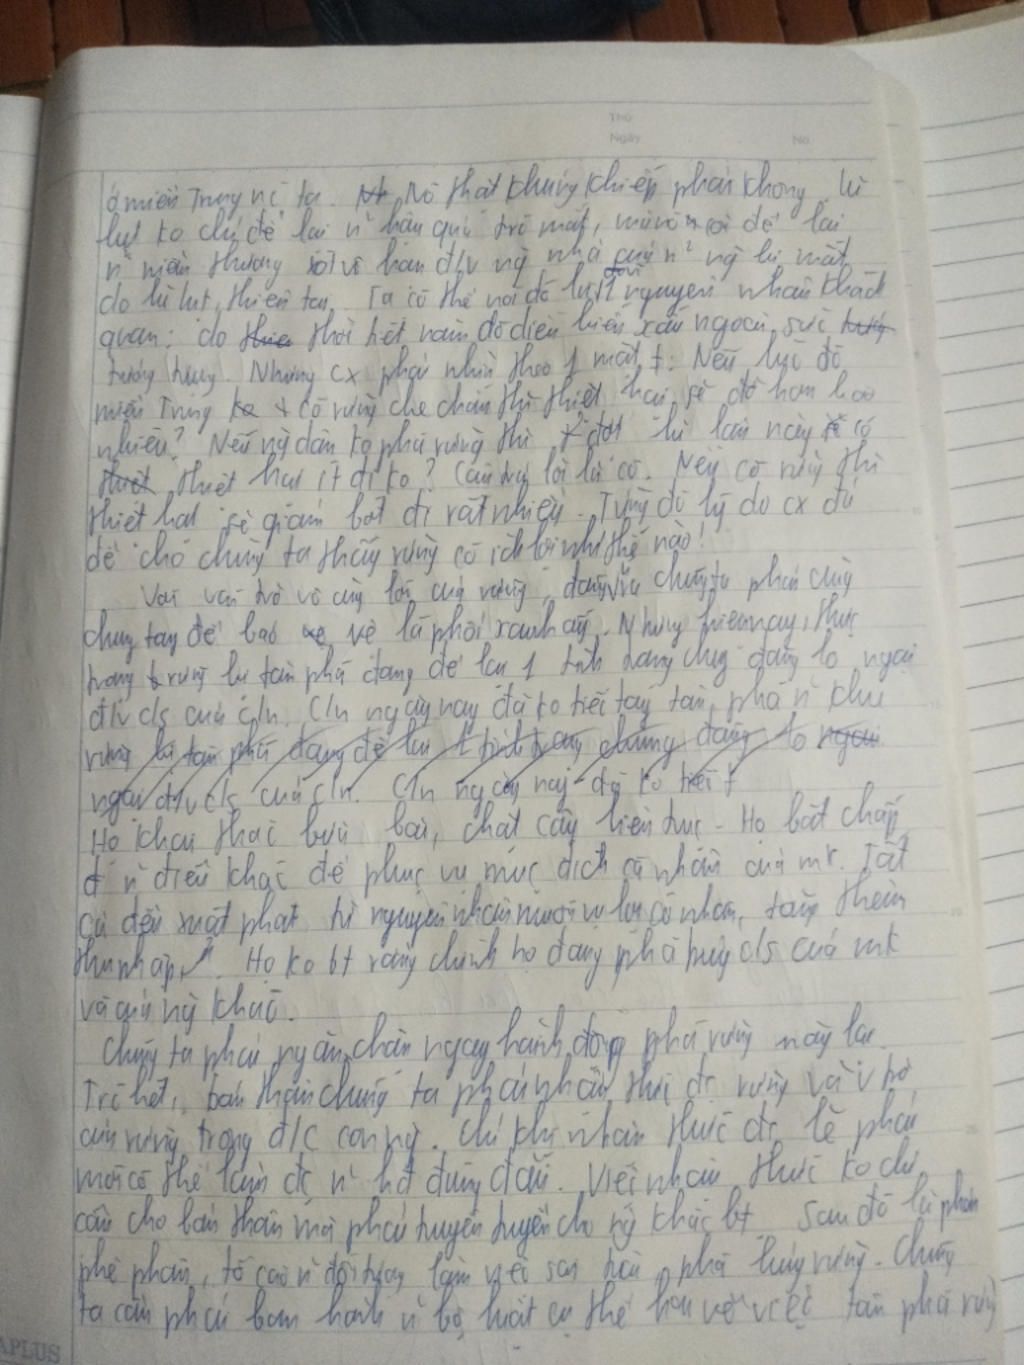 Thứ
Ngày No.
ở miền Trung nc ta. Nó thật khủng khiếp phải không. Lũ
lụt ko chỉ để lại n hậu quả trc mắt, mà nó còn để lại
n niềm thương xót vô hạn đ/v ng nhà quý n² ng bị mất
do lũ lụt, thiên tai. Ta có thể nói đó là nguyên nhân khách
quan: do thời tiết năm đó diễn biến xấu ngoài sức
tưởng tượng. Nhưng cx phải nhìn theo 1 mặt ≠: Nếu lúc đó
miền Trung có rừng che chắn thì thiệt hại sẽ đỡ hơn bao
nhiêu? Nếu ng dân ko phá rừng thì đợt lũ lần này có
thiệt hại ít đi ko? Câu trả lời là có. Nếu có rừng thì
thiệt hại sẽ giảm bớt đi rất nhiều. Từng đó lý do cx đủ
để cho chúng ta thấy rừng có ích lợi như thế nào!
Với vai trò vô cùng lớn của rừng, chúng ta phải cùng
chung tay để bảo vệ lá phổi xanh ấy. Nhưng hiện nay, thực
trạng rừng bị tàn phá đang để lại 1 tình trạng chung đáng lo ngại
đ/v c/s của c/n. C/n ngày nay đã ko tiếc tay tàn phá n khu
rừng bị tàn phá đang để lại 1 tình trạng chung đáng lo ngại
ngại đ/v c/s của c/n. C/n ngày nay đã ko tiếc t
Họ khai thác bừa bãi, chặt cây liên tục. Họ bất chấp
n điều khác để phục vụ mục đích cá nhân của mk. Tất
cả đều xuất phát từ nguyên nhân muốn vụ lợi cá nhân, tăng thêm
thu nhập. Họ ko bt rằng chính họ đang phá hủy c/s của mk
và của ng khác.
Chúng ta phải ngăn chặn ngay hành động phá rừng này lại.
Trc hết, bản thân chúng ta phải nhận thức đc rừng và v trò
của rừng trong đ/s con ng. Chỉ khi nhận thức đc lẽ phải
mới có thể làm đc n hđ đúng đắn. Việc nhận thức ko chỉ
cần cho bản thân mà phải tuyên truyền cho ng khác bt. Sau đó là phải
phê phán, tố cáo n đối tượng làm việc sai trái, phá hủy rừng. Chúng
ta cần phải ban hành n bộ luật cụ thể hơn về việc tàn phá rừng
APLUS